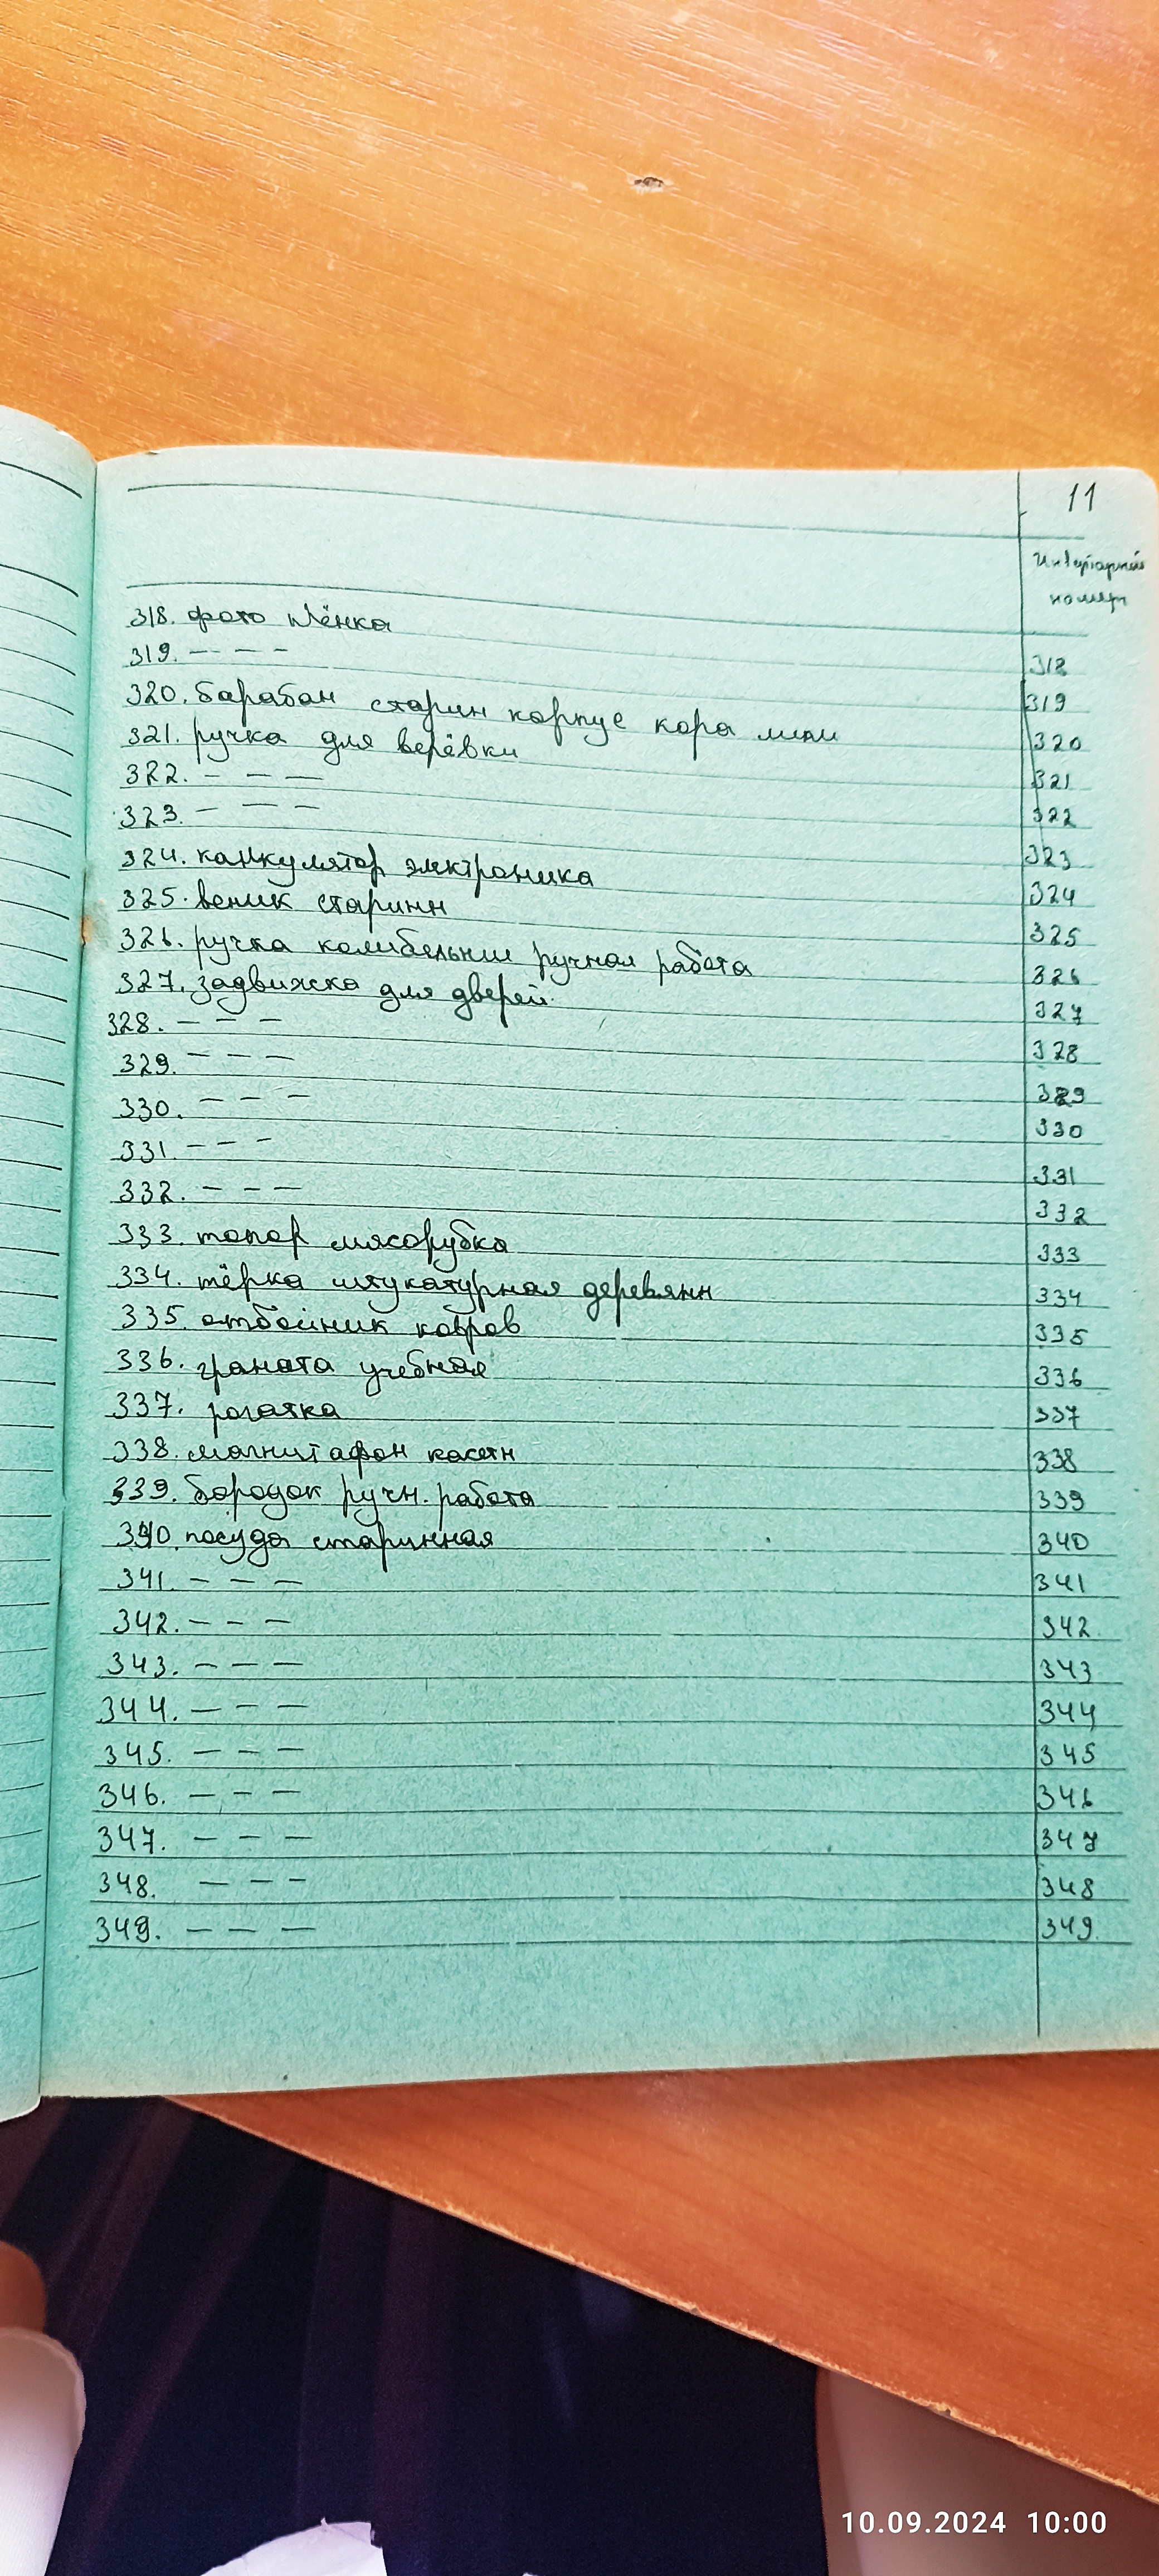 11
Инвертарный
номер
318. фото плёнка
319. — — —
318
320. барабан старин корпус кора липи
319
321. ручка для верёвки
320
322. — — —
321
323. — — —
322
324. калкулятор электроника
323
325. веник старинн
324
326. ручка колибельни ручная работа
325
327. задвижка для дверей.
326
328. — — —
327
329. — — —
328
330. — — —
329
331. — — —
330
332. — — —
331
333. топор мясорубка
332
334. тёрка штукатурная деревянн
333
335. отбойник ковров
334
336. граната учебная
335
337. рогатка
336
338. магнитафон касетн
337
339. бородок ручн. работа
338
340. посуда старинная
339
341. — — —
340
342. — — —
341
343. — — —
342
344. — — —
343
345. — — —
344
346. — — —
345
347. — — —
346
348. — — —
347
349. — — —
348
349.
10.09.2024 10:00